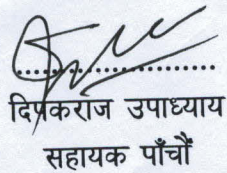 दिपकराज उपाध्याय
सहायक पाँचौं